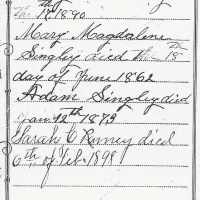 th 17 1890
Mary Magdalene
Singley died the 18th
day of June 1862
Adam Singley died
Jan 12th 1873
Sarah C Rumey died
6th of Feb. 1898